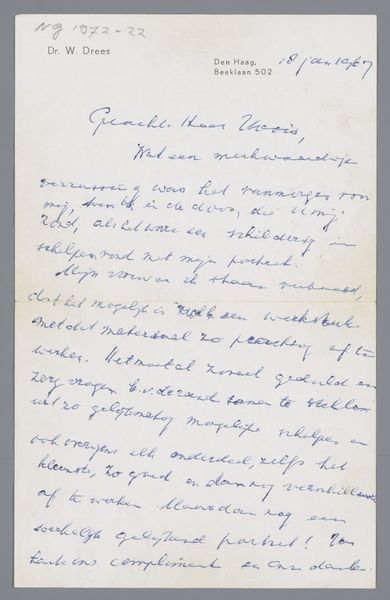 NG 1972-22
Dr. W. Drees
Den Haag, 18 jan 1967
Beeklaan 502
Geachte Heer
Wat een merkwaardige
verrassing was het vanmorgen voor
mij, toen ik in de doos, die U mij
zond, als het ware een schilderij in
schelpen vond met mijn portret.
Mijn vrouw en ik staan verbaasd,
dat het mogelijk is zulk een werkstuk
met dat materiaal zo prachtig af te
werken. Het moet al zoveel geduld en
zorg vragen de rand samen te stellen
uit zo gelijkmatig mogelijke schelpen en
ook overigens elk onderdeel, zelfs het
kleinste, zo goed en daarnog verschillend
af te werken. Maar dan nog een
werkelijk gelijkend portret! Zeer
ons compliment en onze dank.